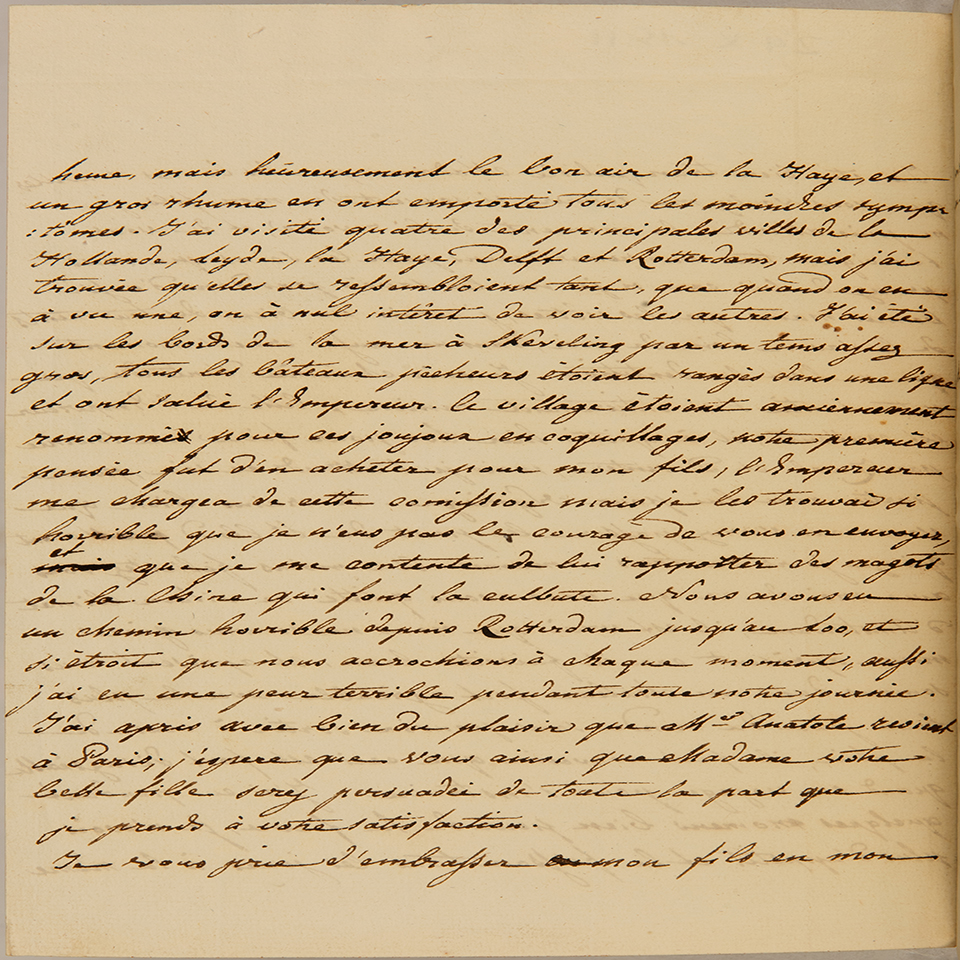 heure, mais héureusement le bon air de la Haye, et
un gros rhume en ont emporté tous les moindres symp
:tômes. J'ai visité quatre des principales villes de la
Hollande, Leyde, la Haye, Delft et Rotterdam, mais j'ai
trouvée qu'elles se ressembloient tant, que quand on en
à vu une, on à nul intérêt de voir les autres. J'ai été
sur les bords de la mer à Skeveling par un tems assez
gros, tous les bâteaux pêcheurs étoient rangés dans une ligne
et ont salué l'Empereur. le village étoient anciennement
renommé pour ces joujoux en coquillages, notre première
pensée fut d'en acheter pour mon fils, l'Empereur
me chargea de cette comission mais je les trouvai si
horrible que je n'eus pas le courage de vous en envoyer,
et que je me contente de lui rapporter des magots
de la Chine qui font la culbute. Nous avons eu
un chemin horrible depuis Rotterdam jusqu'au Loo, et
si étroit que nous accrochions à chaque moment, aussi
j'ai eu une peur terrible pendant toute notre journée.
J'ai apris avec bien du plaisir que Mr Anatole revient
à Paris; j'espere que vous ainsi que Madame votre
belle fille serez persuadée de toute la part que
je prends à votre satisfaction.
Je vous prie d'embrasser mon fils en mon